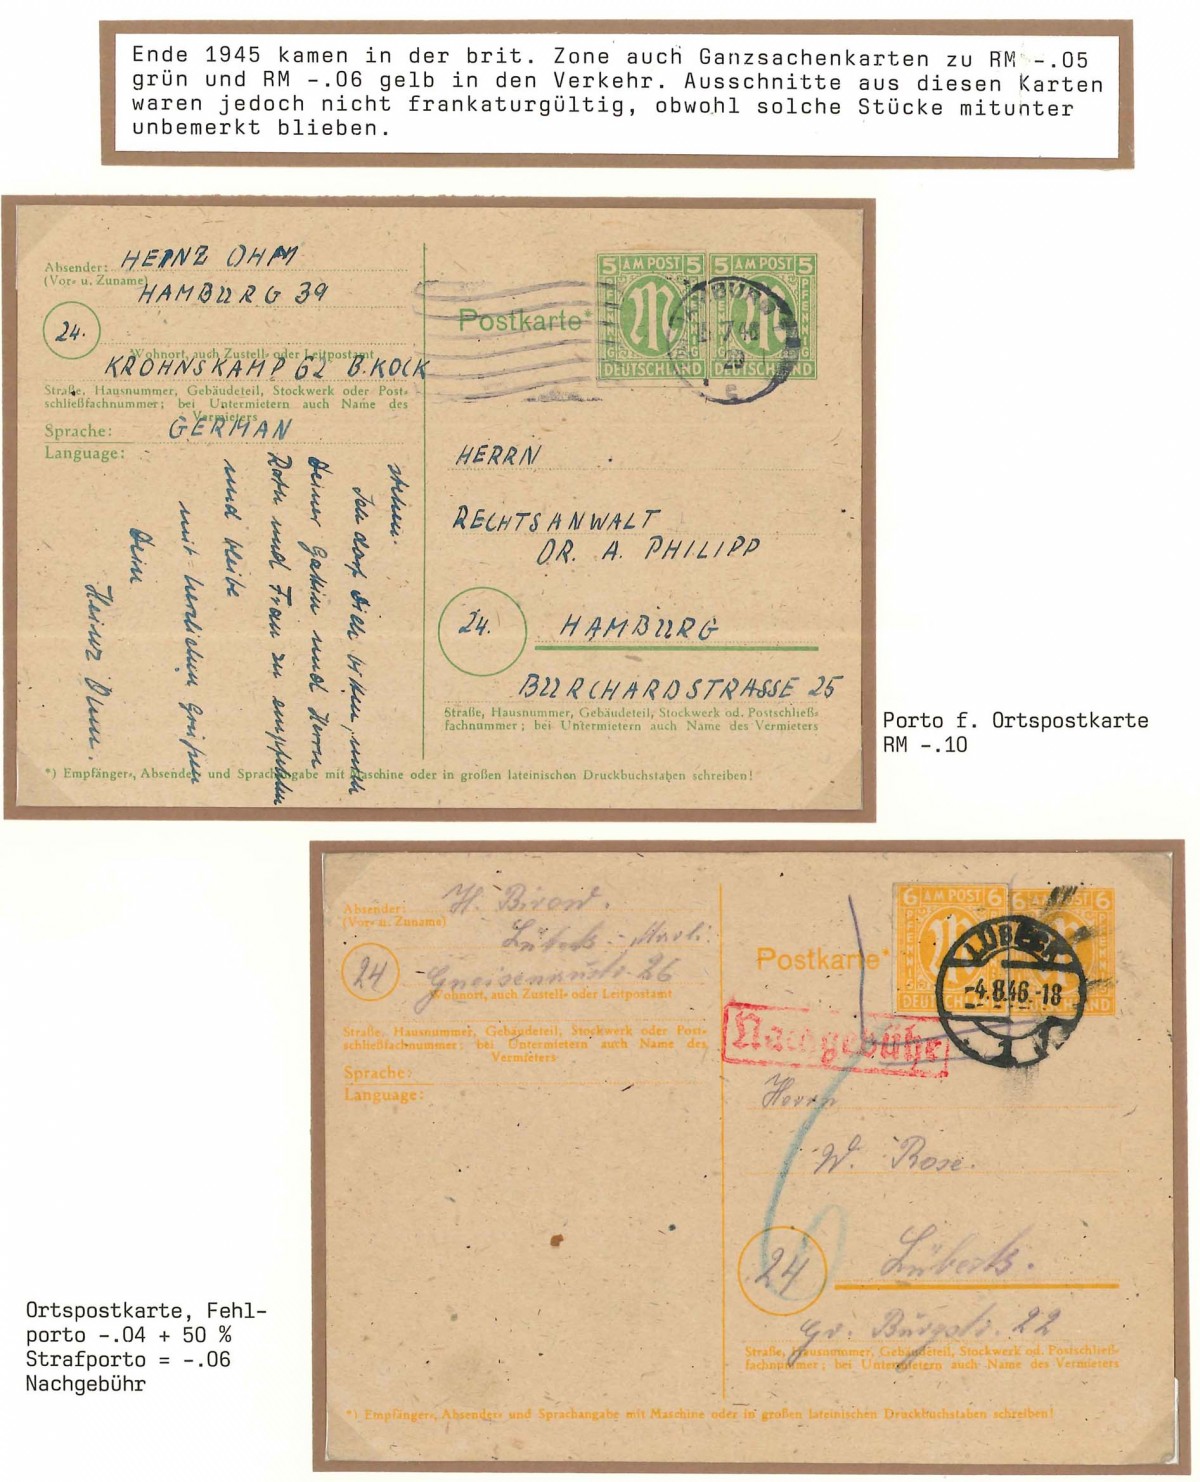 Ende 1945 kamen in der brit. Zone auch Ganzsachenkarten zu RM -.05
grün und RM -.06 gelb in den Verkehr. Ausschnitte aus diesen Karten
waren jedoch nicht frankaturgültig, obwohl solche Stücke mitunter
unbemerkt blieben.
Absender: HEINZ OHM
(Vor- u. Zuname)
HAMBURG 39
24.
Wohnort, auch Zustell- oder Leitpostamt
KROHNSKAMP 62 B. KOCK
Straße, Hausnummer, Gebäudeteil, Stockwerk oder Post-
schließfachnummer; bei Untermietern auch Name des
Vermieters
Sprache: GERMAN
Language:
stehen.
Ich darf Dich bitten, mich
Deiner Gattin und Herrn
Rath und Frau zu empfehlen
und bleibe
mit herzlichen Grüßen
Dein
Heinz Ohm.
Postkarte*
5 AM POST 5
PFENNIG
DEUTSCHLAND
5 AM POST 5
PFENNIG
DEUTSCHLAND
HAMBURG
7 46
20
HERRN
RECHTSANWALT
DR. A. PHILIPP
24.
HAMBURG
BURCHARDSTRASSE 25
Straße, Hausnummer, Gebäudeteil, Stockwerk od. Postschließ-
fachnummer; bei Untermietern auch Name des Vermieters
*) Empfänger-, Absender- und Sprachangabe mit Maschine oder in großen lateinischen Druckbuchstaben schreiben!
Porto f. Ortspostkarte
RM -.10
Absender: H.
(Vor- u. Zuname)
Lübeck - Marli.
24
Gneisenaustr. 26
Wohnort, auch Zustell- oder Leitpostamt
Straße, Hausnummer, Gebäudeteil, Stockwerk oder Post-
schließfachnummer; bei Untermietern auch Name des
Vermieters
Sprache:
Language:
Postkarte*
6 AM POST 6
PFENNIG
DEUTSCHLAND
6 AM POST 6
PFENNIG
DEUTSCHLAND
LÜBECK
-4.8.46.-18
1
Nachgebühr
6
Herrn
W. Rose.
24
Lübeck.
Gr. Burgstr. 22
Straße, Hausnummer, Gebäudeteil, Stockwerk od. Postschließ-
fachnummer; bei Untermietern auch Name des Vermieters
*) Empfänger-, Absender- und Sprachangabe mit Maschine oder in großen lateinischen Druckbuchstaben schreiben!
Ortspostkarte, Fehl-
porto -.04 + 50 %
Strafporto = -.06
Nachgebühr